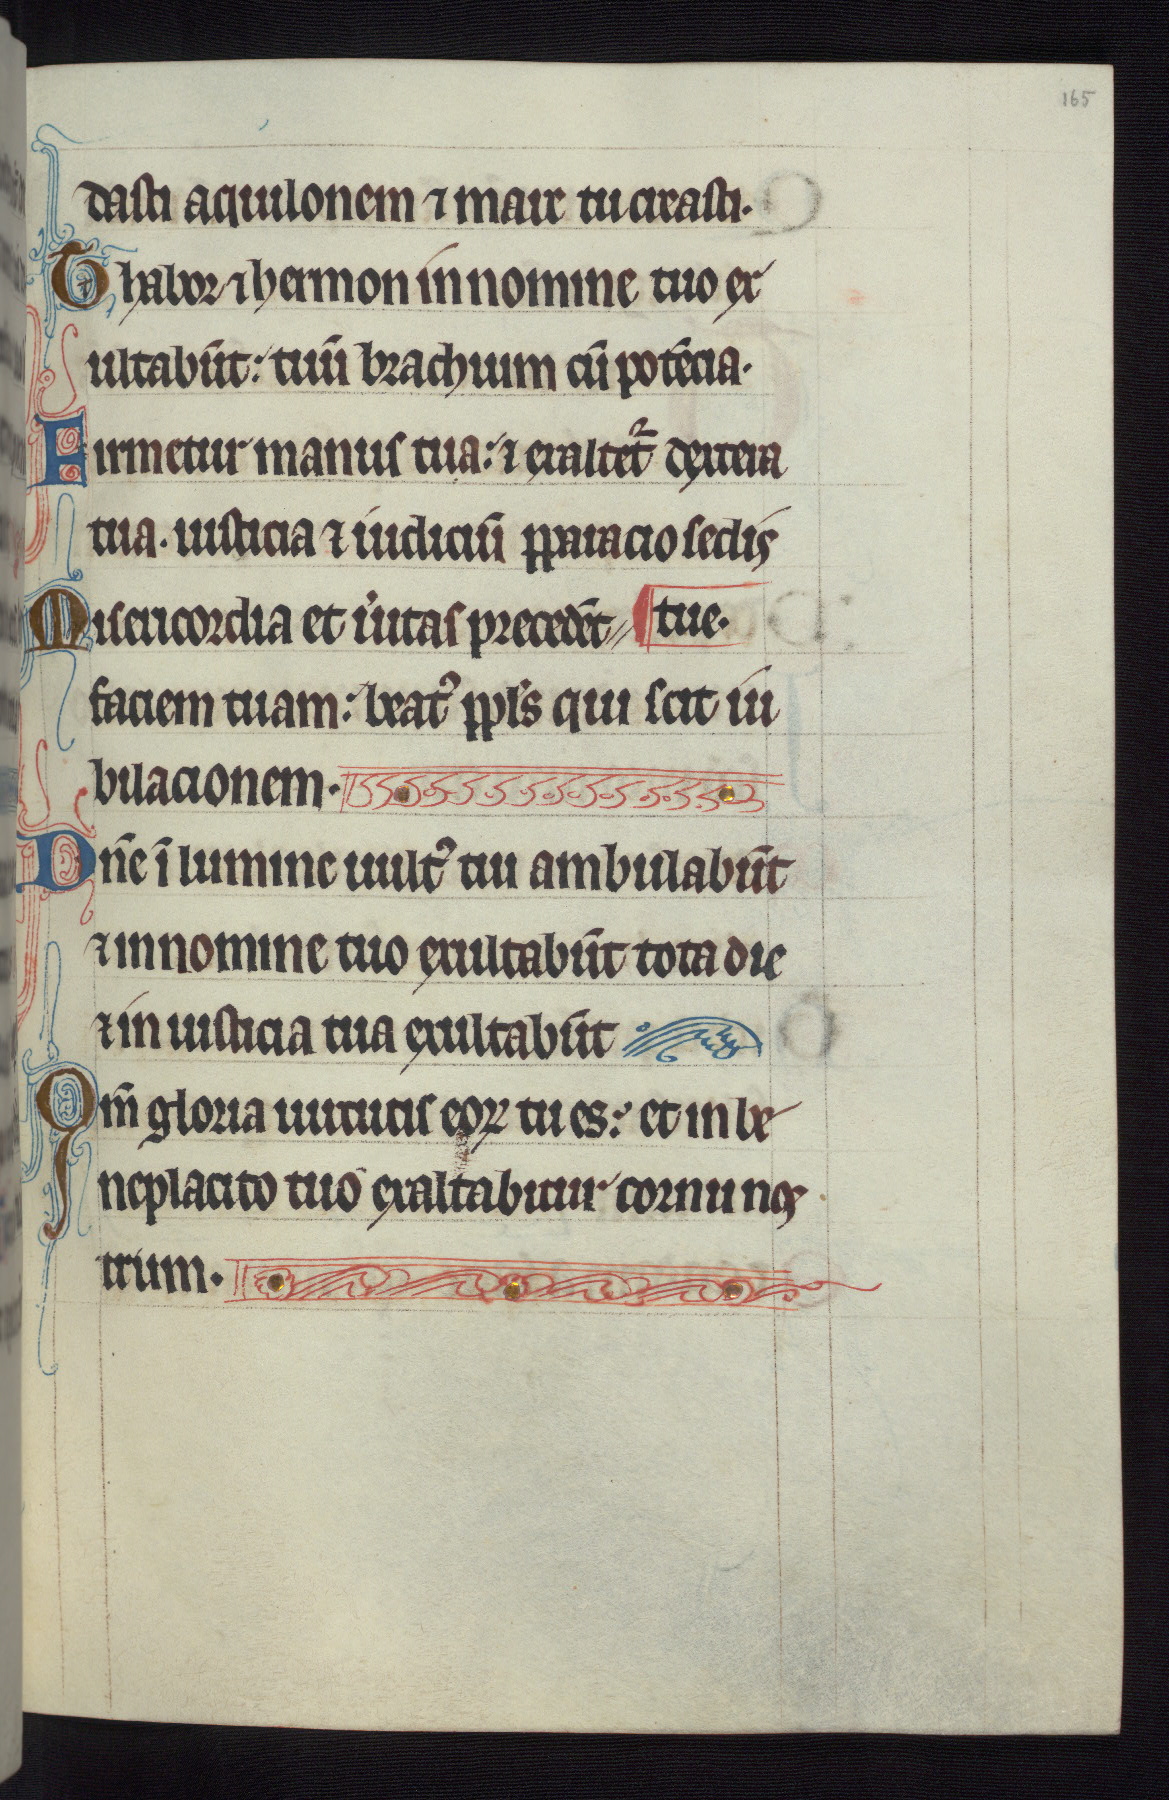 165
dasti aquilonem ⁊ mare tu creasti.
Thabor ⁊ hermon in nomine tuo ex
ultabūt: tuū brachium cū potēcia.
Firmetur manus tua: ⁊ exaltet᷑ dextera
tua. iusticia ⁊ iudiciū p̱paracio sedis
Misericordia et ũitas precedēt // tue.
faciem tuam: beatꝰ pp̄ls qui scit iu
bilacionem.
Dñe ī lumine uultꝰ tui ambulabūt
⁊ in nomine tuo exultabūt tota die
⁊ in iusticia tua exultabūt
Qm̄ gloria uirtutis eoꝝ tu es: et in be
neplacito tuo exaltabitur cornu nos
trum.